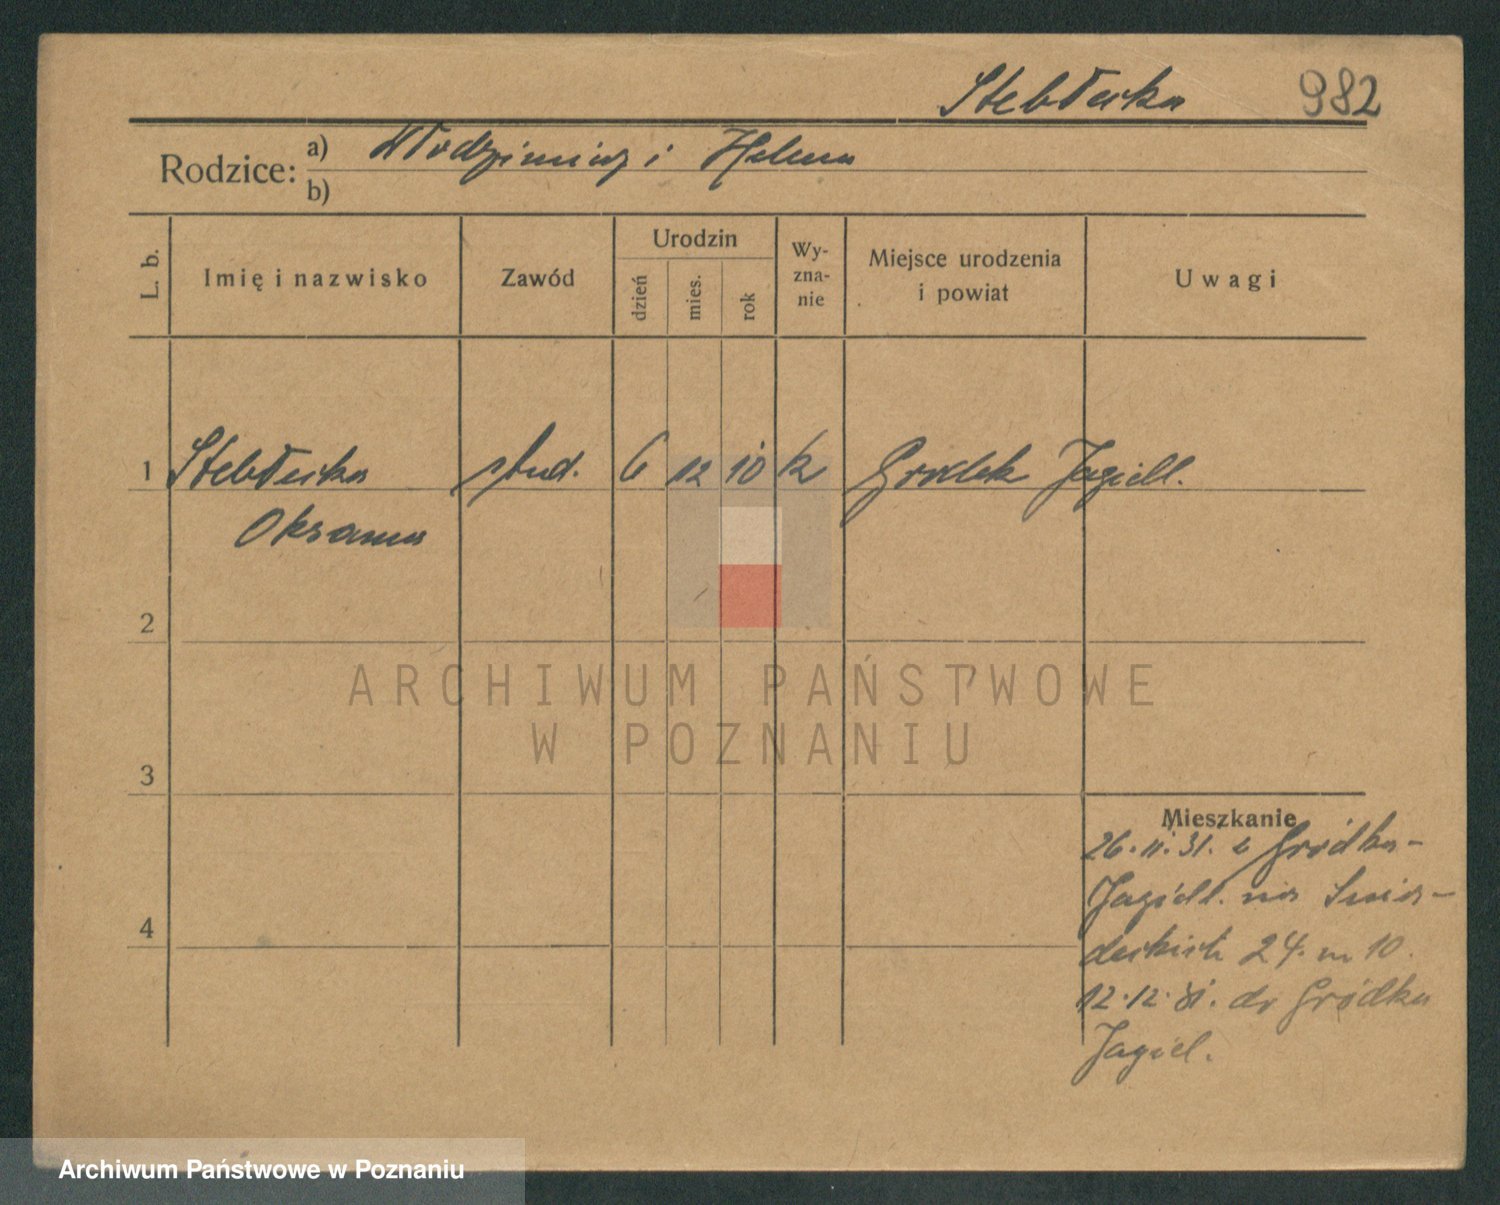 Stebłecka 982
Rodzice: a) Włodzimierz i Helena
b)
L. b.
Imię i nazwisko
Zawód
Urodzin
dzień
mies.
rok
Wy-
zna-
nie
Miejsce urodzenia
i powiat
Uwagi
1 Stebłecka stud. 6 12 10 k Gródek Jagiell.
Oksana
2
ARCHIWUM PAŃSTWOWE
W POZNANIU
3
Mieszkanie
26.11.31. z Gródka-
Jagiell. na Śnia-
deckich 24. m 10.
4
12.12.31. do Gródka
Jagiel.
Archiwum Państwowe w Poznaniu